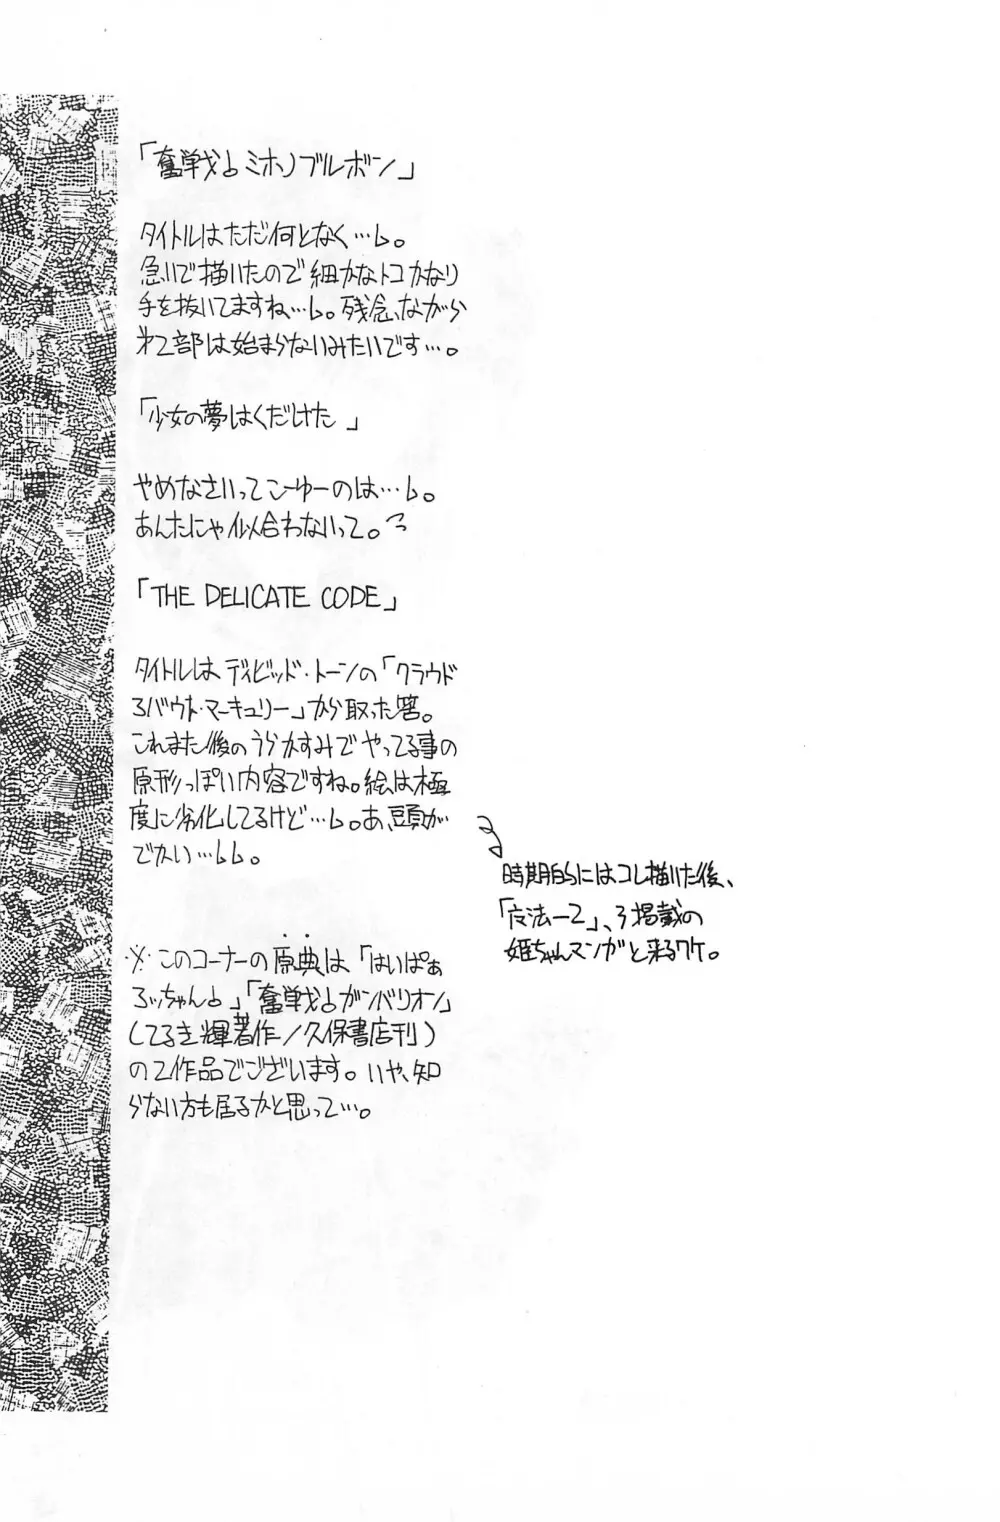 「奮戦♭ミホノブルボン」
タイトルはただ何となく…し。
急いで描いたので細かなトコかなり
手を抜いてますね…し。残念、ながら
第2部は始まらないみたいです…。
「少女の夢はくだけた」
やめなさいってこーゆーのは…し。
あんたにゃ似合わないって。
「THE DELICATE CODE」
タイトルはディビッド・トーンの「クラウド
アバウト・マーキュリー」から取った筈。
これまた後のうらかすみでやってる事の
原形っぽい内容ですね。絵は極
度に劣化してるけど…し。あ、頭が
でかい…しし。
時期的にはコレ描いた後、
「皮法一2」、3掲載の
姫ちゃんマンガと来るワケ。
※このコーナーの原典は「はいぱぁ
ろっちゃん♭」「奮戦♭ガンバリオン」
(てるき輝著作/久保書店刊)
の2作品でございます。いや、知
らない方も居るかと思って…。